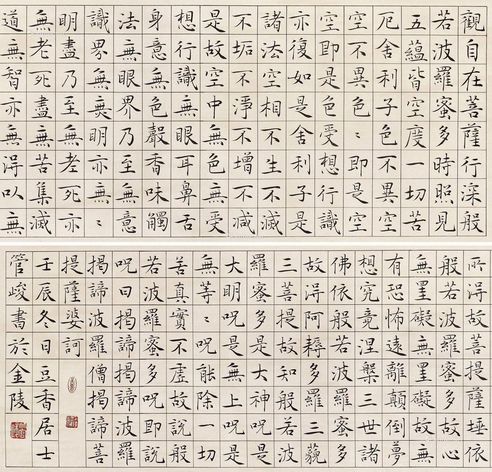 觀自在菩薩行深般
若波羅蜜多時照見
五蘊皆空度一切苦
厄舍利子色不異空
空不異色〻即是空
空即是色受想行識
亦復如是舍利子是
諸法空相不生不滅
不垢不淨不增不減
是故空中無色無受
想行識無眼耳鼻舌
身意無色聲香味觸
法無眼界乃至無意
識界無無明亦無〻
明盡乃至無老死亦
無老死盡無苦集滅
道無智亦無得以無
所得故菩提薩埵依
般若波羅蜜多故心
無罣礙無罣礙故無
有恐怖遠離顛倒夢
想究竟涅槃三世諸
佛依般若波羅蜜多
故得阿耨多羅三藐
三菩提故知般若波
羅蜜多是大神呪是
大明呪是無上呪是
無等〻呪能除一切
苦真實不虛故說般
若波羅蜜多呪即說
呪曰揭諦揭諦波羅
揭諦波羅僧揭諦菩
提薩婆訶
壬辰冬日豆香居士
管峻書於金陵